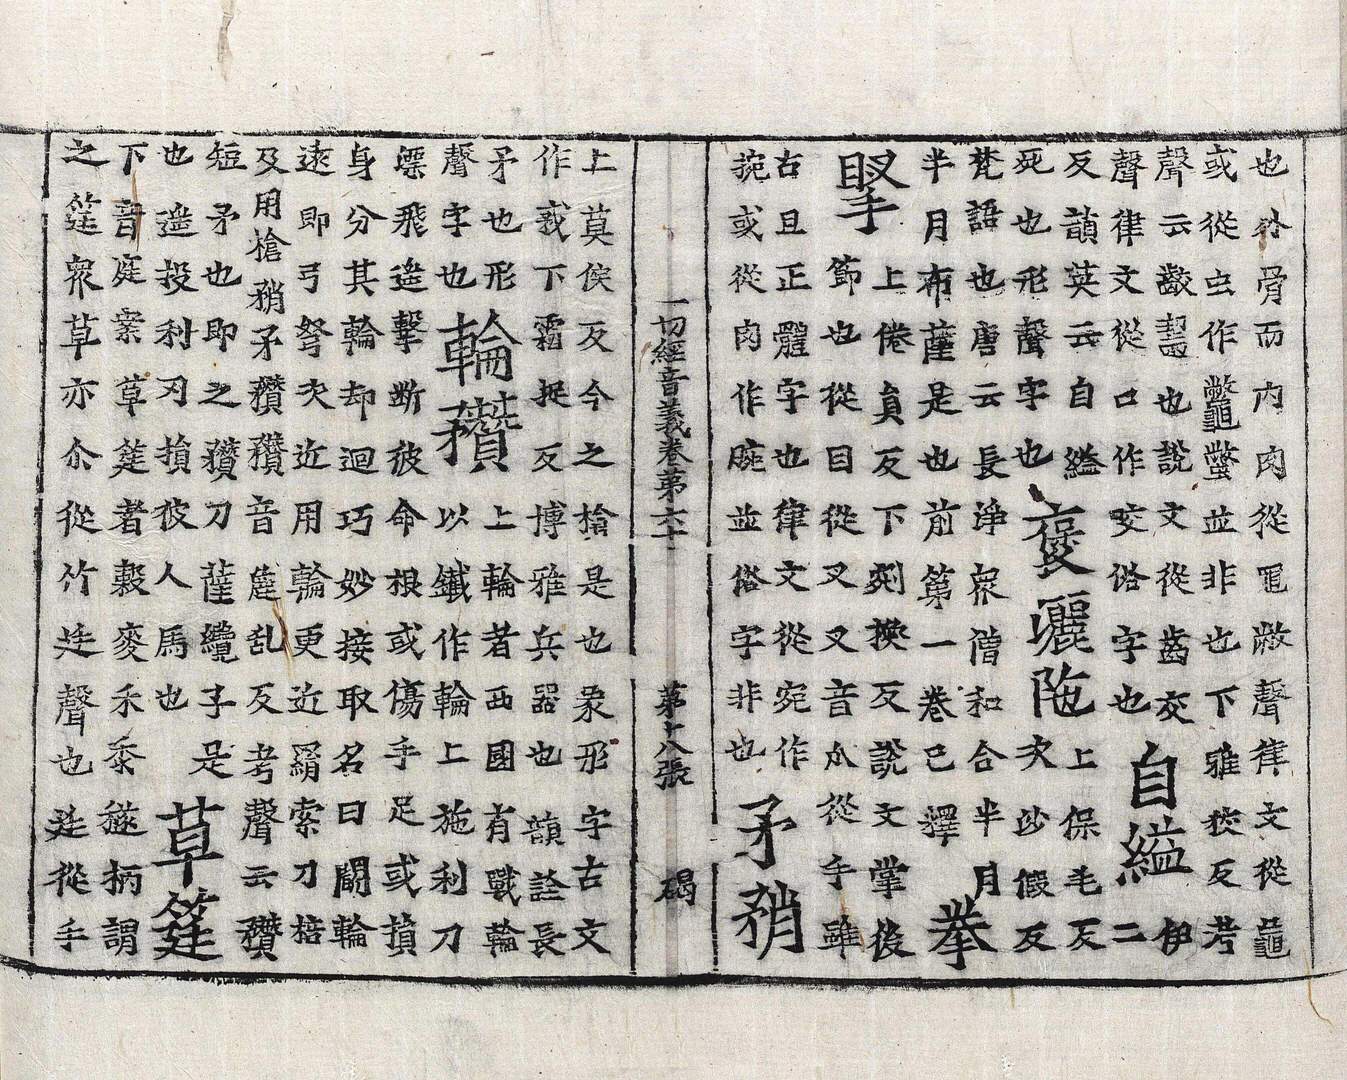 也外骨而內肉從黽敝聲律文從龜
或從虫作鼈蟞並非也下雅狡反考
聲云齩齧也說文從齒交
聲律文從口作咬俗字也 自縊 伊二
反韻英云自縊
死也形聲字也 褒灑陁 上保毛反次沙假反
梵語也唐云長淨眾僧和合半月
半月布薩是也前第一卷已釋 拳
掔 上倦員反下剜換反說文掌後
節也從目從叉叉音爪從手雖
古且正體字也律文從宛作
捥或從肉作腕並俗字非也 矛矟
一切經音義卷第六十 第十八張 碣
上莫侯反今之槍是也象形字古文
作𢦧下霜捉反博雅兵器也韻詮長
矛也形聲字也 輪䂎 上輪者西國有戰輪
以鐵作輪上施利刀
𢷾飛遙擊斷彼命根或傷手足或損
身分其輪却迴巧妙接取名曰鬪輪
遠即弓弩次近用輪更近羂索刀棓
及用槍矟矛䂎䂎音麁乱反考聲云䂎
短矛也即之䂎刀䕯纜子是
也遙投利刃損彼人馬也 草莛
下音庭案草莛者穀麥禾黍𦼮柄謂
之莛眾草亦尒從竹廷聲也廷從手